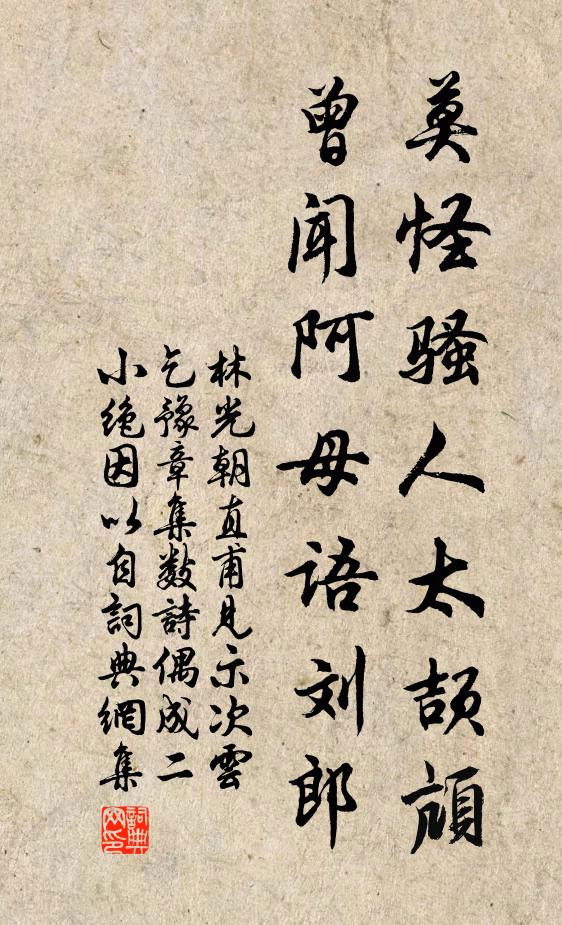 莫怪骚人太颉颃
曾闻阿母语刘郎
林光朝直甫見示次雲
乞豫章集数詩偶成二
小絶因以自詞典網集
詞典
网印